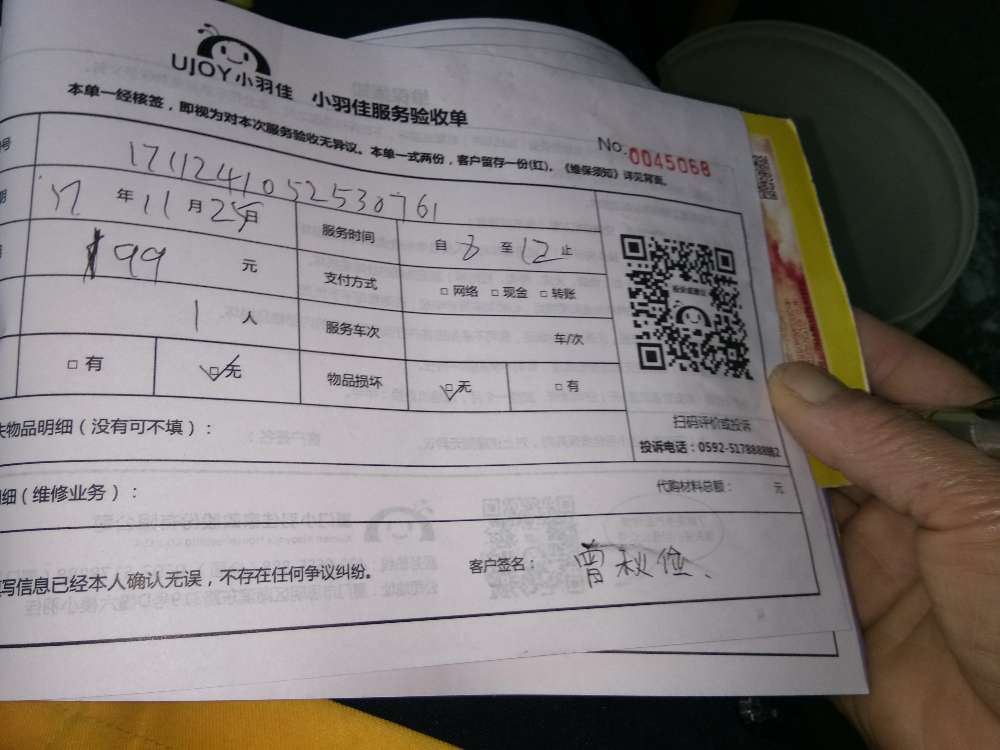 UJOY小羽佳 小羽佳服务验收单
本单一经核签，即视为对本次服务验收无异议。本单一式两份，客户留存一份(红)。《维保须知》详见背面。
No.0045068
号 171124105253070761
期 17 年 11 月 25 日 服务时间 自 8 至 12 止
99 元 支付方式 □ 网络 □ 现金 □ 转账
1 人 服务车次 车/次
□ 有 □ 无 物品损坏 □ 无 □ 有
扫码评价或投诉
失物品明细（没有可不填）：
投诉电话：0592-5178888转2
细（维修业务）： 代购材料总额： 元
填写信息已经本人确认无误，不存在任何争议纠纷。 客户签名： 曾秋俭